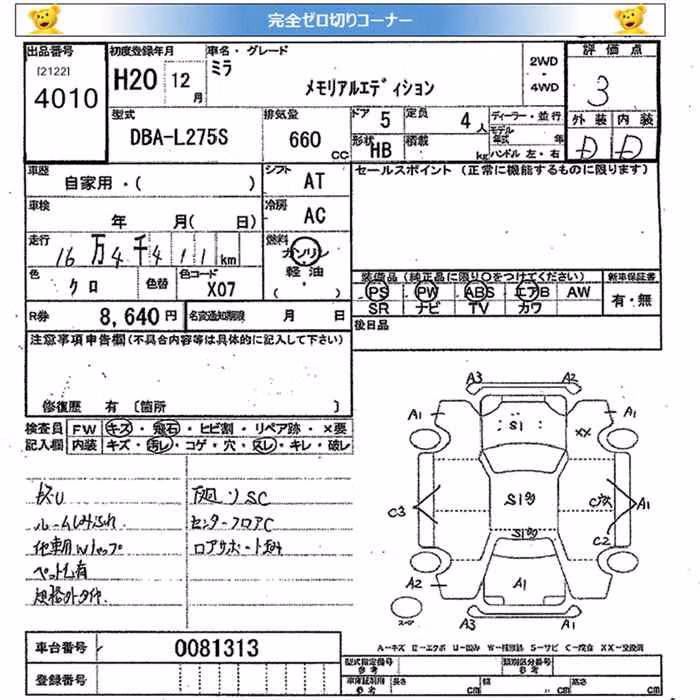 完全ゼロ切りコーナー
出品番号
[2122]
4010
初度登録年月
H20 12月
車名・グレード
ミラ
メモリアルエディション
2WD
4WD
評価点
3
型式
DBA-L275S
排気量
660 CC
ドア 5
定員 4人
形状 HB
積載 kg
ディーラー・並行
モデル年式 年
ハンドル 左・右
外装 内装
D D
車歴
自家用・( )
シフト AT
セールスポイント (正常に機能するものに限ります)
車検
年 月( 日)
冷房 AC
走行
16万4千411km
燃料
ガソリン
軽油
( )
色
クロ
色替
色コード
X07
装備品 (純正品に限り○をつけてください)
新車保証書
PS PW ABS エアB AW
有・無
SR ナビ TV カワ
R券 8,640円
名変通知期限 月 日
後日品
注意事項申告欄 (不具合内容等は具体的に記入して下さい)
修復歴 有 [箇所 ]
検査員 FW キズ・飛石・ヒビ割・リペア跡・×要
記入欄 内装 キズ・汚レ・コゲ・穴・スレ・キレ・破レ
ルームしみ汚れ
センターフロアC
ロアサポート歪み
ペット臭有
規格外タイヤ
A3 A2
A1 A1
S1 XX
C3 S1 A1
C2
S1
A2 A1
A3 A3
スペア
車台番号 0081313
A－キズ E－エクボ U－凹み W－補修跡 S－サビ C－腐食 XX－交換済
登録番号
型式指定番号 参考
類別区分番号 参考
車庫証明用 参考
長さ cm 幅 cm 高さ cm